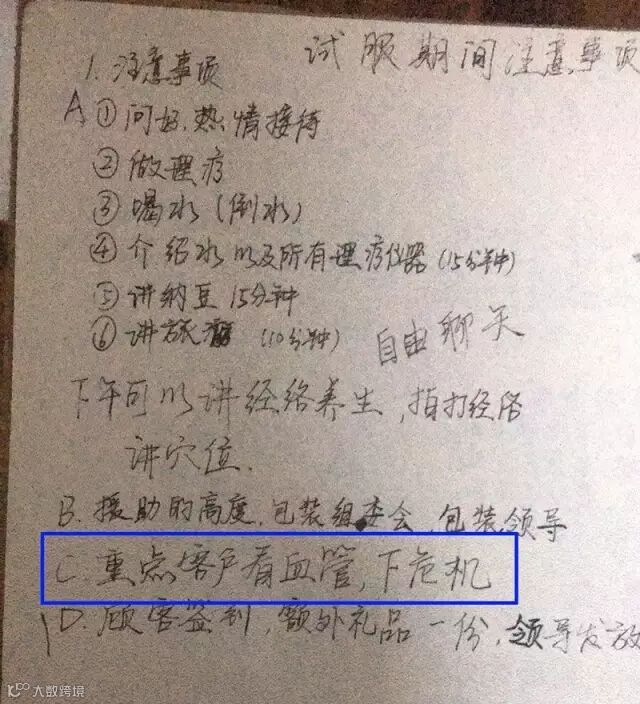 试服期间注意事项
1. 注意事项
A ① 问好,热情接待
② 做理疗
③ 喝水(倒水)
④ 介绍水以及所有理疗仪器(15分钟)
⑤ 讲纳豆15分钟
⑥ 讲旅 (10分钟) 自由聊天
下午可以讲经络养生,拍打经络
讲穴位.
B. 援助的高度,包装组委会,包装领导
C. 重点客户看血管,下危机
D. 顾客签到 额外礼品一份,领导发放
大数跨境